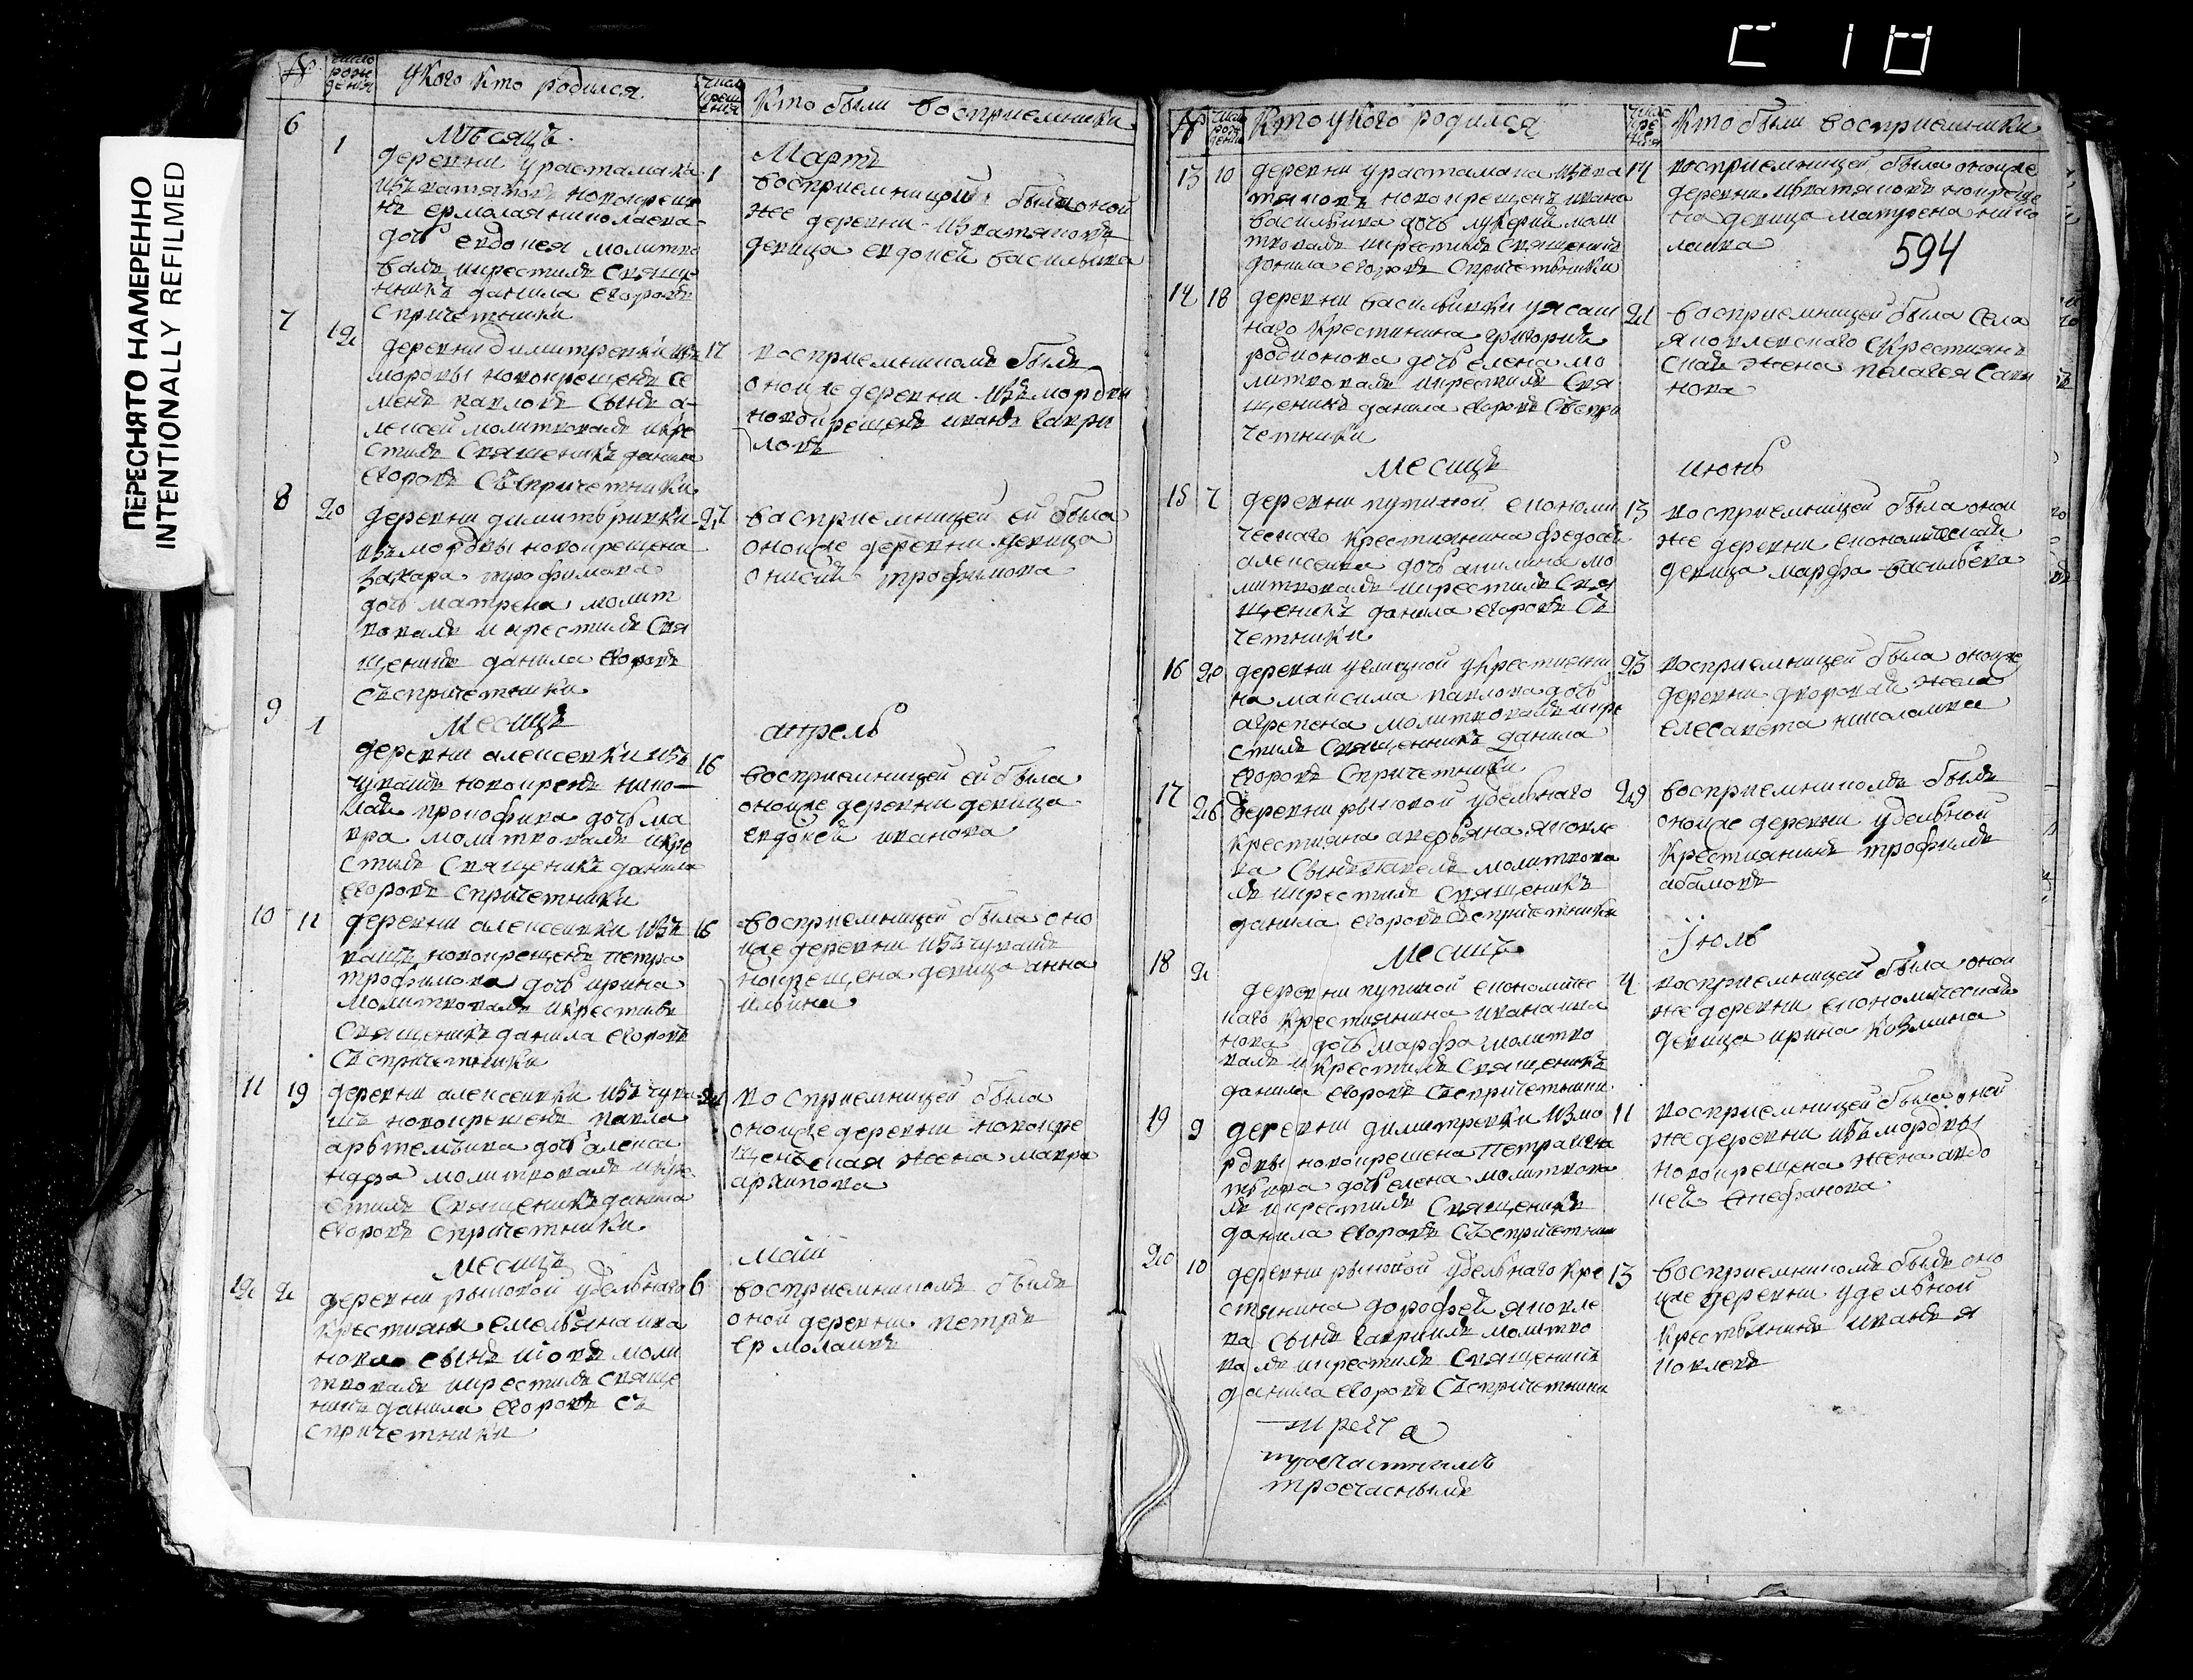 ПЕРЕСНЯТО НАМЕРЕННО
INTENTIONALLY REFILMED
№
число рождения
у кого кто родился
число крещения
Кто были восприемники
Месяцъ
Мартъ
6 1
деревни урастамака 1
изъ ватяковъ новокреще
нъ ермолая николаева
дочь евдокея молитво
валъ икрестилъ Свяще
нникъ данила егоровъ
Спричетники
восприемницой была оной
же деревни изватяковъ
девица евдокей васильива
7 12
деревни димитревки изъ 17
мордвы новокрещенъ се
менъ павловъ сынъ а
лексей молитвовалъ икре
стилъ Священикъ данила
егоровъ Съспричетники
восприемникомъ былъ
онойже деревни изъ мордви
новокрещенъ иванъ гаври
ловъ
8 20
деревни димитъривки 27
изъ мордвы новокрещена
захара трофимова
дочь матрена молит
вовалъ икрестилъ Свя
щеникъ данила егоровъ
съспричетники
васприемницей ей была
онойже деревни девица
онисия трофимова
Месицъ
апрель
9 1
деревни алексевки изъ 16
чувашъ новокренъ нико
лай прокофива дочь ма
вра молитвовалъ икре
стилъ Священикъ данила
егоровъ спричетники
восприемницей ей была
онойже деревни девица
евдокей иванова
10 11
деревни алексеивки изъ 16
вашъ новокрещенъ петра
трофимова дочь ирина
молитвовалъ икрестилъ
Священикъ данила егоровъ
Съспричетники
восприемницей была оно
йже деревни изъчувашъ
нокрещена девица анна
ильина
11 19
деревни алексеивки изъ чува
шъ новокрешенъ павла
арьтемъива дочь алекса
ндра молитвовалъ икре
стилъ Священикъ данила
егоровъ спричетники
восприемницей была
онойже деревни новокре
щенъская жена мавра
архипова
Месицъ
май
12 2
деревни рыковой удельнаго 6
крестияни емельяна ива
нова сынъ иовъ моли
твовалъ икрестилъ свяще
никъ данила егоровъ съ
спричетники
восприемникомъ былъ
оной деревни петръ
ермолаивъ
№
число рождения
Кто укого родился
число крещения
Кто были восприемники
594
13 10
деревни урастамака изъва 14
тяковъ новокрещенъ ивана
васильива дочь лукерия моли
твовалъ икрестилъ Священикъ
данила егоровъ Спричетьники
восприемницей была онойже
деревни изватяковъ нокреще
на девица матрена нико
лаива
14 18
деревни василивки уясаш 21
наго Крестинина григорий
родионова дочь елена мо
литвовалъ икрестилъ Свя
щеникъ данила егоровъ Съспри
четники
восприемницей была Села
яковлевскаго Крестиянъ
ская жена пелагея Сави
нова
месицъ
июнь
15 7
деревни путиной економи 13
ческаго крестиянина федосей
алексеива дочь акилина мо
литвовалъ икрестилъ Свя
щеникъ данила егоровъ Съ
четники
восприемницей была оной
же деревни економической
девица марфа васильева
16 20
23
на максима павлова дочь
агрепена молитвовалъ икре
стилъ Священникъ данила
егоровъ Спричетники
восприемницей была онойже
деревни дворовай жена
елесавета николаива
17 26
деревни рыковой удельнаго 29
крестияна аверьяна яковле
ва Сынъ павелъ молитвова
лъ икрестилъ священикъ
данила егоровъ Съспричетники
восприемникомъ былъ
онойже деревни удельной
Крестиянинъ трофимъ
абамовъ
Месицъ
Июль
18 2
деревни путиной економичес 4
каго Крестиянина ивана ива
нова дочь марфа молитво
валъ икрестилъ Священикъ
данила егоровъ Съспричетники
восприемницей была оной
же деревни економической
девица ирина Козмина
19 9
деревни димитревки изъмо 11
рдвы новокрешена Петра игна
тьива дочь елена молитвова
лъ икрестилъ Священикъ
данила егоровъ Съспричетники
восприемницей была оной
же деревни изъ мордвы
новокрещена жена авдо
кея епефанова
20 10
деревни рыковой удельнаго кре 13
стянина дорофей яковле
ва сынъ гаврилъ молитво
валъ икрестилъ Священикъ
данила егоровъ Съспричетники
восприемникомъ былъ оно
йже деревни удельной
Крестьянинъ иванъ я
ковлевъ
троечаснымъ